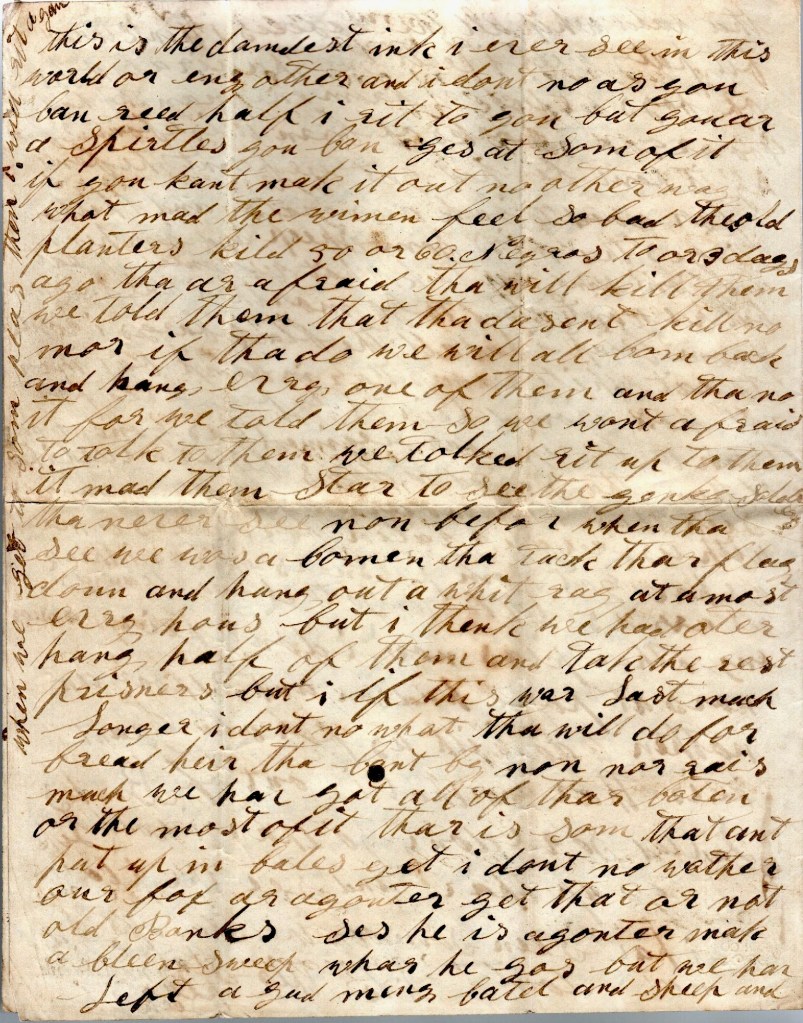 this is the damdest ink i ever see in this
world or eny other and i dont no as you
can reed half i rit to you but you ar
a Spirtles you can ges at Som of it
if you kant make it out no other way
what mad the wimen feel so bad the old
planters kild 50 or 60 Negros to or 3 days
ago tha ar afraid tha will kill them
we told them that tha dasent kill no
mor if tha do we will all com back
and hang evry one of them and tha no
it for we told them so we wont afraid
to talk to them we talked rit up to them
it mad them Star to see the yonkey
tha never see non befor when tha
see we was a comen tha tack thar flag
down and hang out a whit rag at amost
evry hous but i thenk we had oter
hang half of them and take the rest
prisners but i if this war Last much
Longer i dont no what tha will do for
bread heir tha cant by non nor rais
much we hav got all of thar coten
or the most of it thar is som that ant
put up in bales yet i dont no wather
our fox ar a gonter get that or not
old Banks ses he is a gonter mak
a cleen sweep whar he gos but we hav
Left a gud meny catel and sheep and
when we get